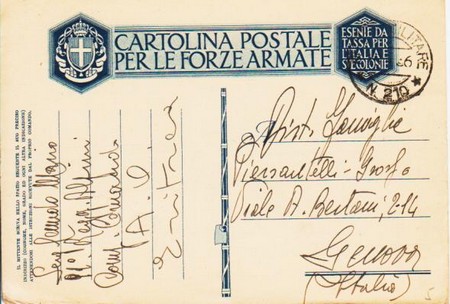 CARTOLINA POSTALE
PER LE FORZE ARMATE
ESENTE DA
TASSA PER
L'ITALIA E
SUE COLONIE
MILITARE
N. 210
IL MITTENTE SCRIVA NELLO SPAZIO SEGUENTE IL SUO PRECISO
INDIRIZZO (COGNOME, NOME, GRADO ED OGNI ALTRA INDICAZIONE)
ATTENENDOSI ALLE ISTRUZIONI RICEVUTE DAL PROPRIO COMANDO.
Alpini
Comp. Comando
(A. O.
Eritrea
Famiglia
Piersantelli
Viale A. Bertani, 214
Genova
(Italia)